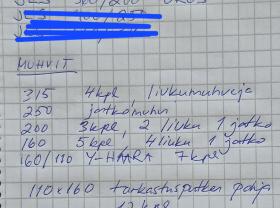 MUHVIT
315 4kpl, liukumuhveja
250 jatkomuhvi
200 3kpl, 2 liuku 1 jatko
160 5kpl, 4 liuku 1 jatko
160/110 Y-HAARA 7kpl
110x160 tarkastusputken pohja
12 kpl